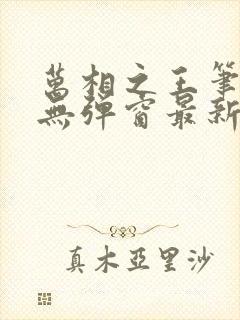 萬相之王筆
無彈窗最新
真木亞里沙